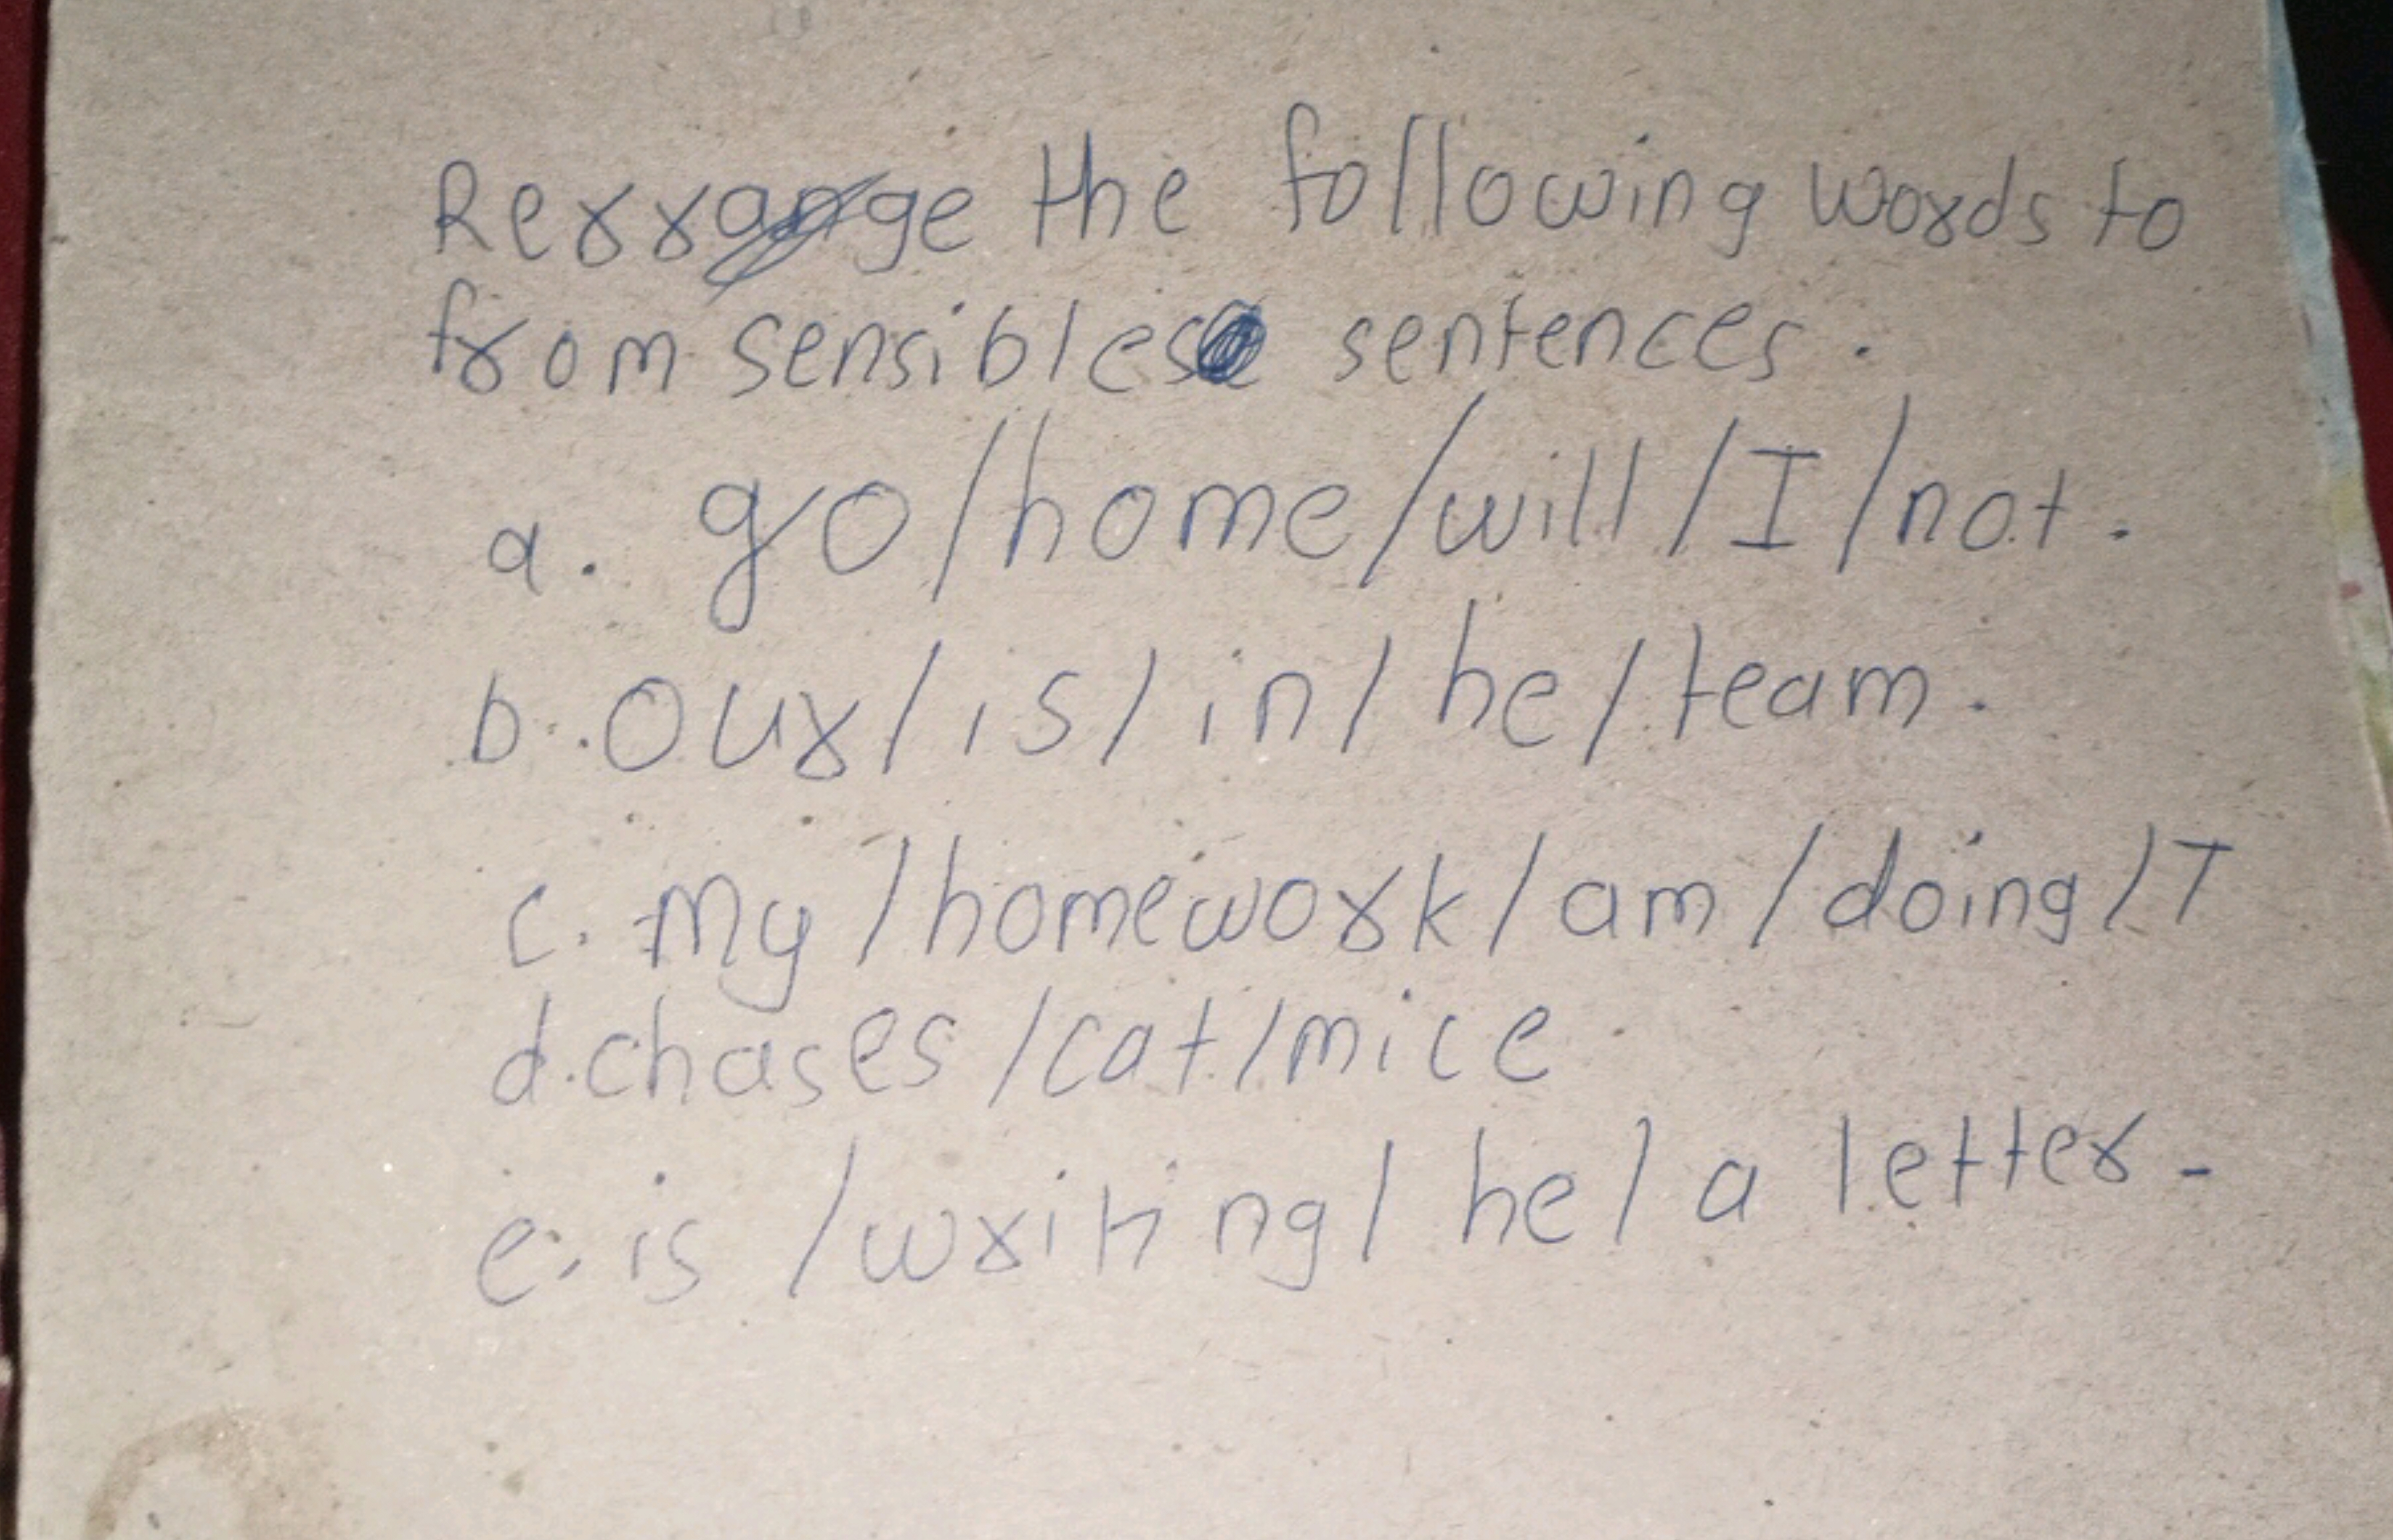 Rerrange the following words to
from sensibles sentences.
a. go/home/will/I/not.
b. Our/is/in/he/team.
c. my/homework/am/doing/I
d. chases/cat/mice
e. is/writing/he/a letter.